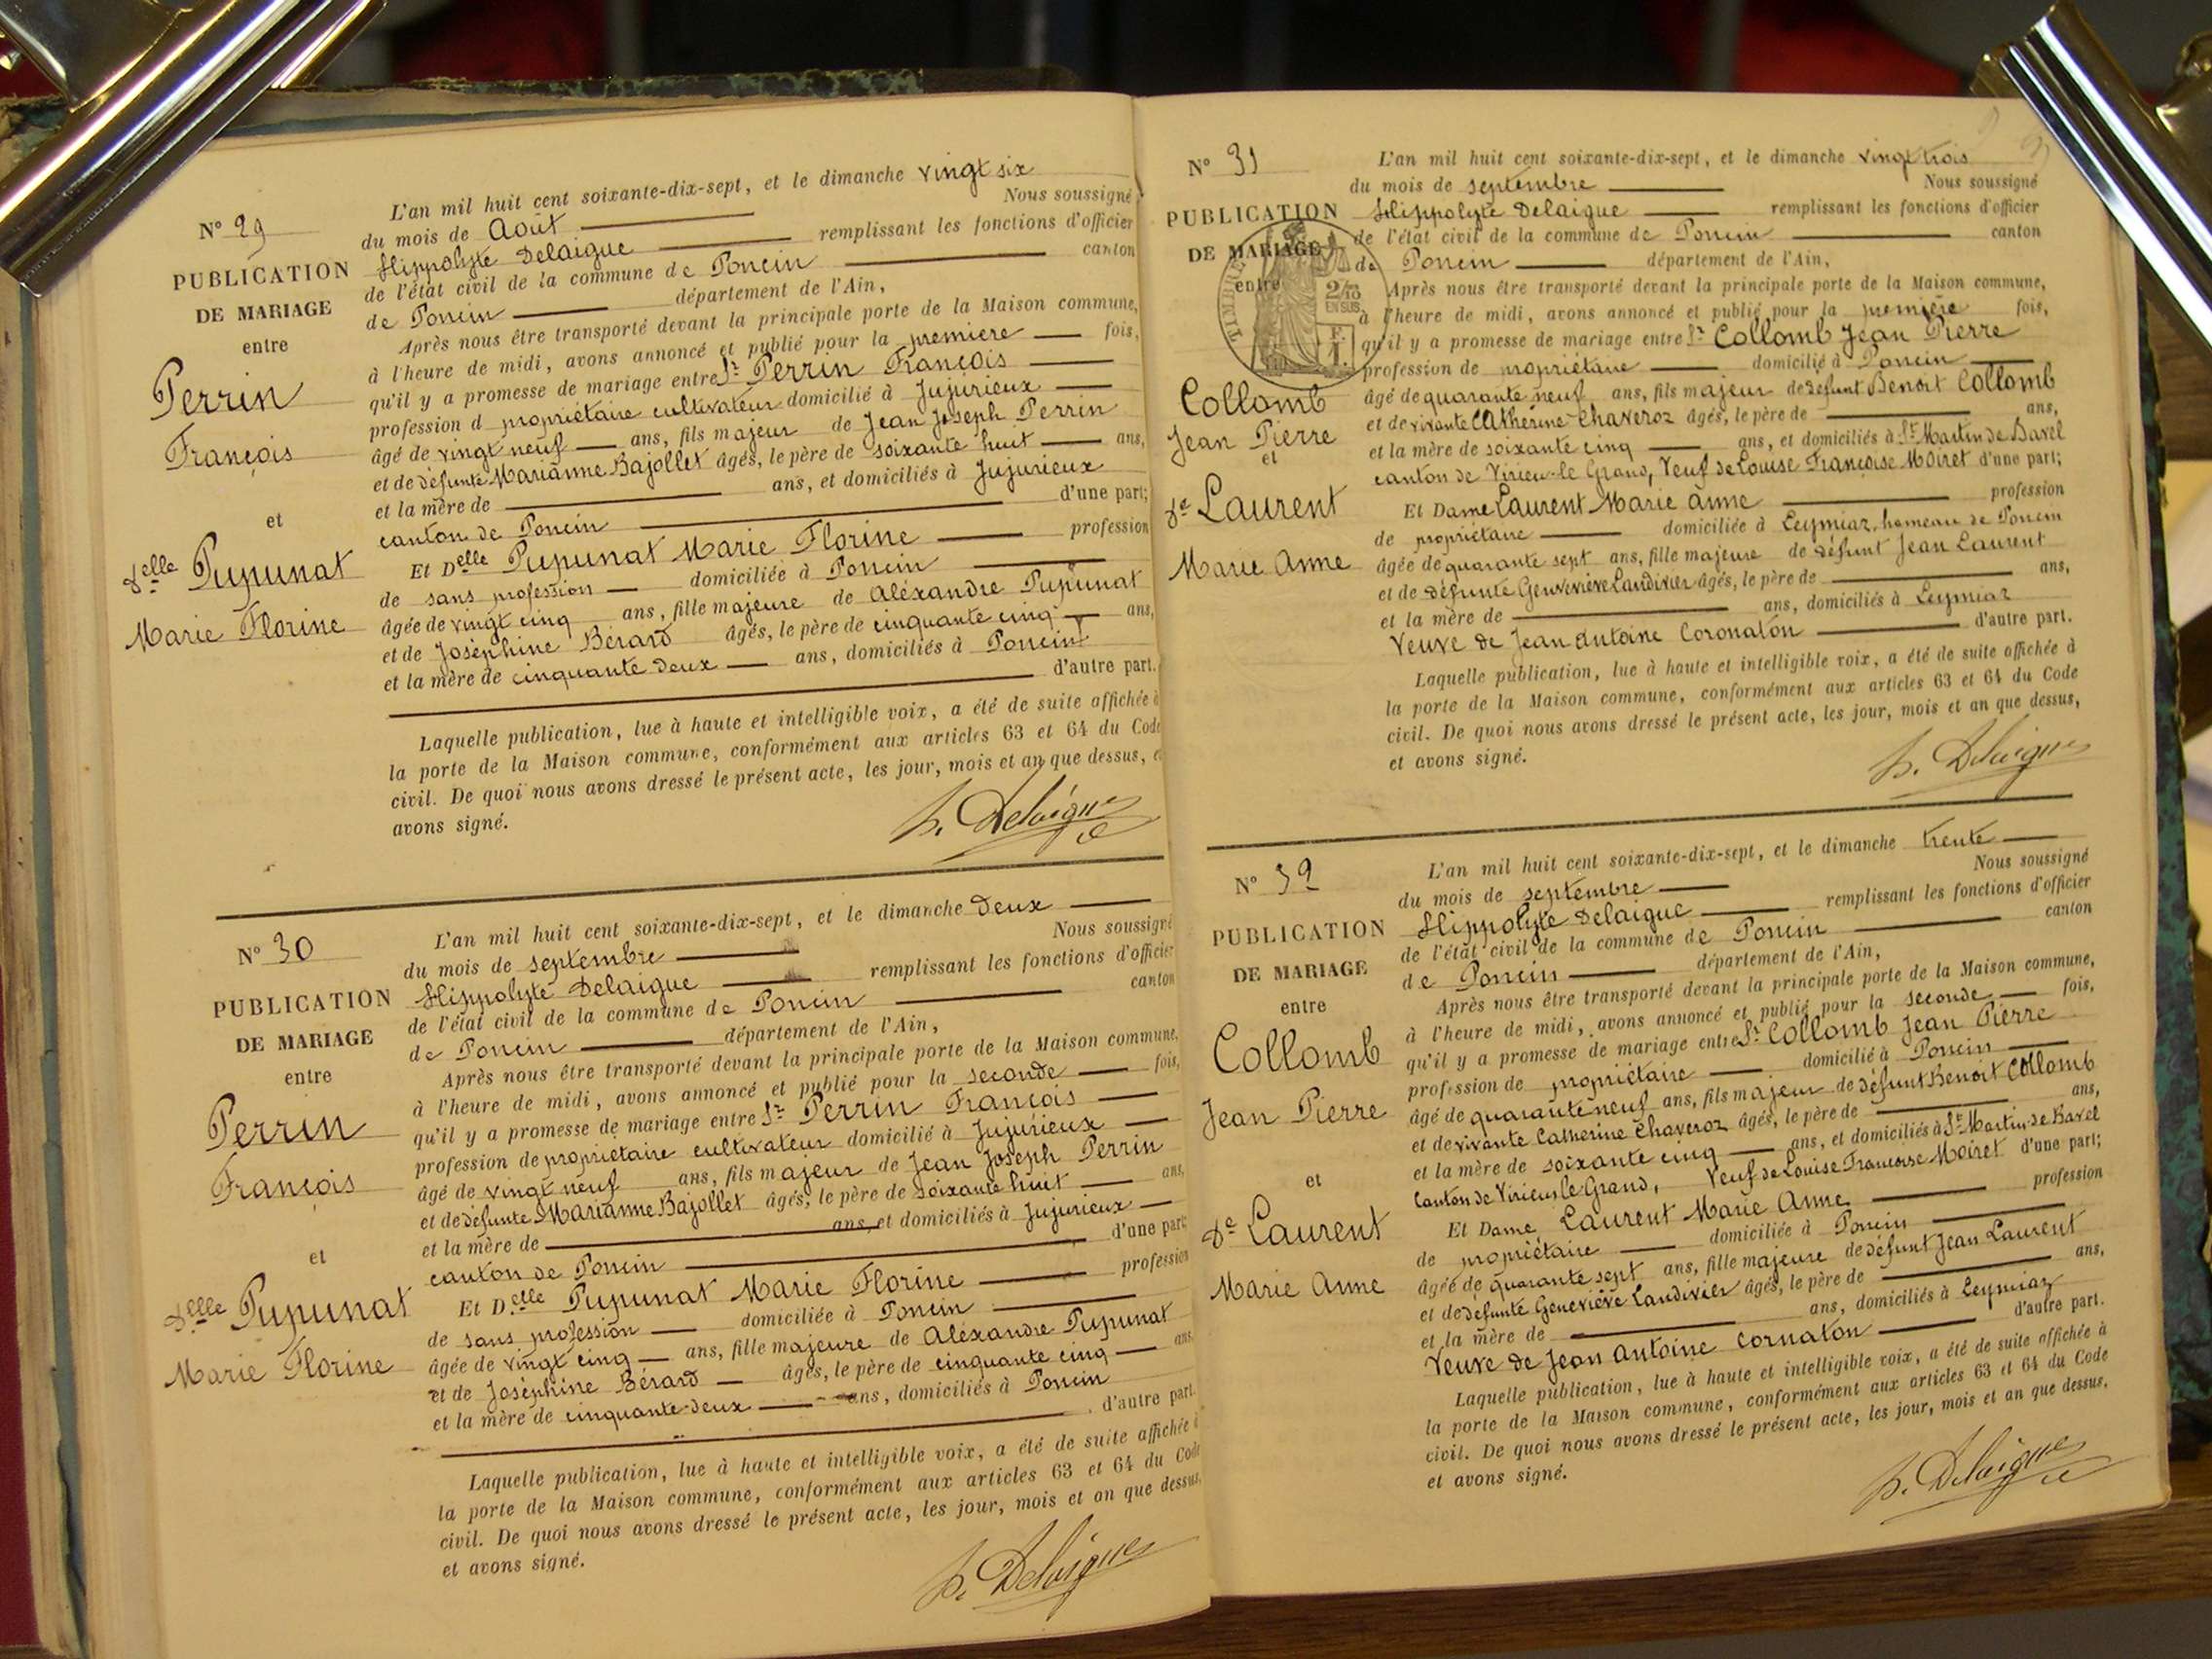 N° 29
PUBLICATION
DE MARIAGE
entre
Perrin
François
et
Delle Pupunat
Marie Florine
L'an mil huit cent soixante-dix-sept, et le dimanche vingt six
du mois de Août Nous soussigné
Hippolyte Delaigue remplissant les fonctions d'officier
de l'état civil de la commune de Poncin canton
de Poncin département de l'Ain,
Après nous être transporté devant la principale porte de la Maison commune,
à l'heure de midi, avons annoncé et publié pour la première fois,
qu'il y a promesse de mariage entre Sr Perrin François
profession d propriétaire cultivateur domicilié à Jujurieux
âgé de vingt neuf ans, fils majeur de Jean Joseph Perrin
et de défunte Marianne Bajollet âgés, le père de soixante huit ans,
et la mère de ans, et domiciliés à Jujurieux
canton de Poncin d'une part;
Et Delle Pupunat Marie Florine profession
de sans profession domiciliée à Poncin
âgée de vingt cinq ans, fille majeure de Aléxandre Pupunat
et de Joséphine Bérard âgés, le père de cinquante cinq ans,
et la mère de cinquante deux ans, domiciliés à Poncin
d'autre part.
Laquelle publication, lue à haute et intelligible voix, a été de suite affichée à
la porte de la Maison commune, conformément aux articles 63 et 64 du Code
civil. De quoi nous avons dressé le présent acte, les jour, mois et an que dessus, et
avons signé.
h. Delaigue
N° 30
PUBLICATION
DE MARIAGE
entre
Perrin
François
et
Delle Pupunat
Marie Florine
L'an mil huit cent soixante-dix-sept, et le dimanche deux
du mois de septembre Nous soussigné
Hippolyte Delaigue remplissant les fonctions d'officier
de l'état civil de la commune de Poncin canton
de Poncin département de l'Ain,
Après nous être transporté devant la principale porte de la Maison commune,
à l'heure de midi, avons annoncé et publié pour la seconde fois,
qu'il y a promesse de mariage entre Sr Perrin François
profession de propriétaire cultivateur domicilié à Jujurieux
âgé de vingt neuf ans, fils majeur de Jean Joseph Perrin
et de défunte Marianne Bajollet âgés, le père de soixante huit ans,
et la mère de ans, et domiciliés à Jujurieux
canton de Poncin d'une part
Et Delle Pupunat Marie Florine profession
de sans profession domiciliée à Poncin
âgée de vingt cinq ans, fille majeure de Aléxandre Pupunat
et de Joséphine Bérard âgés, le père de cinquante cinq ans
et la mère de cinquante deux ans, domiciliés à Poncin
d'autre part.
Laquelle publication, lue à haute et intelligible voix, a été de suite affichée à
la porte de la Maison commune, conformément aux articles 63 et 64 du Code
civil. De quoi nous avons dressé le présent acte, les jour, mois et an que dessus,
et avons signé.
h. Delaigue
N° 31
PUBLICATION
DE MARIAGE
entre
TIMBRE
2/10
EN SUS
Collomb
Jean Pierre
et
De Laurent
Marie Anne
L'an mil huit cent soixante-dix-sept, et le dimanche vingt trois
du mois de septembre Nous soussigné
Hippolyte Delaigue remplissant les fonctions d'officier
de l'état civil de la commune de Poncin canton
de Poncin département de l'Ain,
Après nous être transporté devant la principale porte de la Maison commune,
à l'heure de midi, avons annoncé et publié pour la première fois,
qu'il y a promesse de mariage entre Sr Collomb Jean Pierre
profession de propriétaire domicilié à Poncin
âgé de quarante neuf ans, fils majeur de défunt Benoit Collomb
et de vivante Catherine Chaveroz âgés, le père de ans,
et la mère de soixante cinq ans, et domiciliés à St Martin de Bavel
canton de Virieu-le Grand, Veuf de Louise Françoise Moiret d'une part;
Et Dame Laurent Marie Anne profession
de propriétaire domiciliée à Leymiaz, hameau de Poncin
âgée de quarante sept ans, fille majeure de défunt Jean Laurent
et de défunte Geneviève Landivier âgés, le père de ans,
et la mère de ans, domiciliés à Leymiaz
Veuve de Jean Antoine Coronaton d'autre part.
Laquelle publication, lue à haute et intelligible voix, a été de suite affichée à
la porte de la Maison commune, conformément aux articles 63 et 64 du Code
civil. De quoi nous avons dressé le présent acte, les jour, mois et an que dessus,
et avons signé.
h. Delaigue
N° 32
PUBLICATION
DE MARIAGE
entre
Collomb
Jean Pierre
et
De Laurent
Marie Anne
L'an mil huit cent soixante-dix-sept, et le dimanche trente
du mois de septembre Nous soussigné
Hippolyte Delaigue remplissant les fonctions d'officier
de l'état civil de la commune de Poncin canton
de Poncin département de l'Ain,
Après nous être transporté devant la principale porte de la Maison commune,
à l'heure de midi, avons annoncé et publié pour la seconde fois,
qu'il y a promesse de mariage entre Sr Collomb Jean Pierre
profession de propriétaire domicilié à Poncin
âgé de quarante neuf ans, fils majeur de défunt Benoit Collomb
et de vivante Catherine Chaveroz âgés, le père de ans,
et la mère de soixante cinq ans, et domiciliés à St Martin de Bavel
Canton de Virieu le Grand, Veuf de Louise Françoise Moiret d'une part;
Et Dame Laurent Marie Anne profession
de propriétaire domiciliée à Poncin
âgée de quarante sept ans, fille majeure de défunt Jean Laurent
et de défunte Geneviève Landivier âgés, le père de ans,
et la mère de ans, domiciliés à Leymiaz
Veuve de Jean Antoine Cornaton d'autre part.
Laquelle publication, lue à haute et intelligible voix, a été de suite affichée à
la porte de la Maison commune, conformément aux articles 63 et 64 du Code
civil. De quoi nous avons dressé le présent acte, les jour, mois et an que dessus,
et avons signé.
h. Delaigue